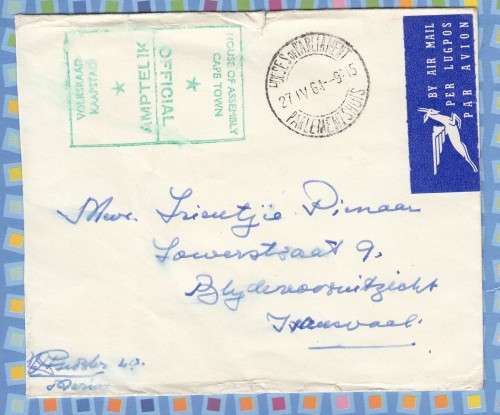 VOLKSRAAD
KAAPSTAD
AMPTELIK
OFFICIAL
HOUSE OF ASSEMBLY
CAPE TOWN
HOUSES OF PARLIAMENT
27 IV 61-9 15
PARLEMENTSHUIS
BY AIR MAIL
PER LUGPOS
PAR AVION
Mev. Trientjie Pienaar
Lowerstraat 9,
Blydevooruitzicht
Transvaal.